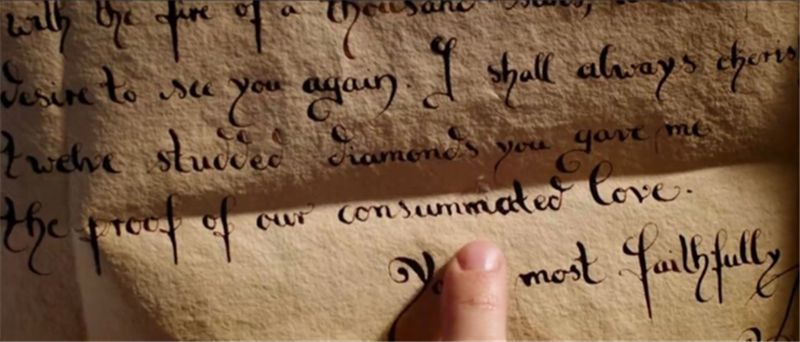 with the fire of a thousand
desire to see you again. I shall always cheris
twelve studded diamonds you gave me
the proof of our consummated love.
most faithfully